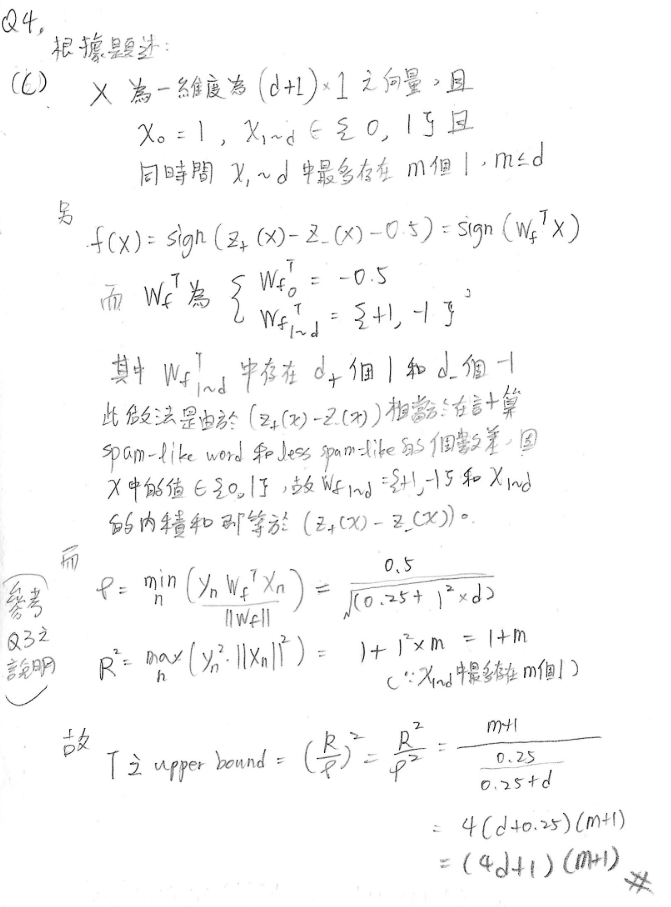 Q4.
根據題述:
(c) X 為一維度為 (d+1)×1 之向量,且
X₀ = 1, X₁~d ∈ {0, 1} 且
同時間 X₁~d 中最多存在 m個 1, m≤d
另
f(x) = sign (z₊(x) - z₋(x) - 0.5) = sign (W_f^T X)
而 W_f^T 為 { W_f₀^T = -0.5
W_f₁~d^T = {+1, -1} ,
其中 W_f₁~d^T 中存在 d₊ 個 1 和 d₋ 個 -1
此做法是由於 (z₊(x) - z₋(x)) 相當於在計算
spam-like word 和 less spam-like 的個數差,因
X 中的值 ∈ {0, 1}, 故 W_f₁~d = {+1, -1} 和 X₁~d
的內積和即等於 (z₊(x) - z₋(x))。
而
ρ = min_n (y_n W_f^T X_n / ||W_f||) = 0.5 / √(0.25 + 1² × d)
(參考 Q3之 說明)
R² = max_n (y_n² · ||X_n||²) = 1 + 1² × m = 1+m
(∵ X₁~d 中最多存在 m個1)
故 T 之 upper bound = (R/ρ)² = R²/ρ² = (m+1) / (0.25 / (0.25+d))
= 4(d+0.25)(m+1)
= (4d+1)(m+1) #